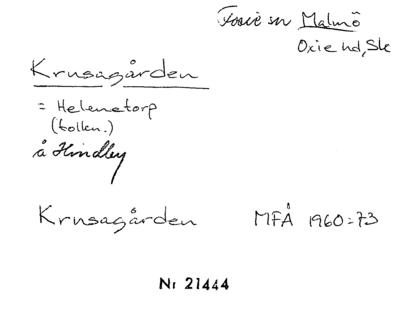 Fosie sn Malmö
Oxie hd, Sk
Krusagården
= Helenetorp
(tolkn.)
å Hindley
Krusagården MFÅ 1960:73
Nr 21444